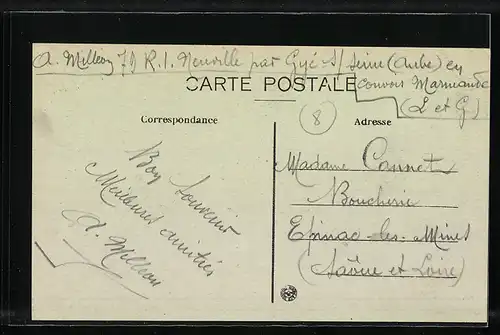 A. Milleon 79 R.I. Neuville par Gyé-S/ Seine (Aube) en
convois Marmande
(L et G)
CARTE POSTALE
8
Correspondance
Adresse
Bon souvenir
Meilleures amitiés
A. Milleon
Madame Cannet
Boucherie
Epinac-les-Mines
(Saône et Loire)